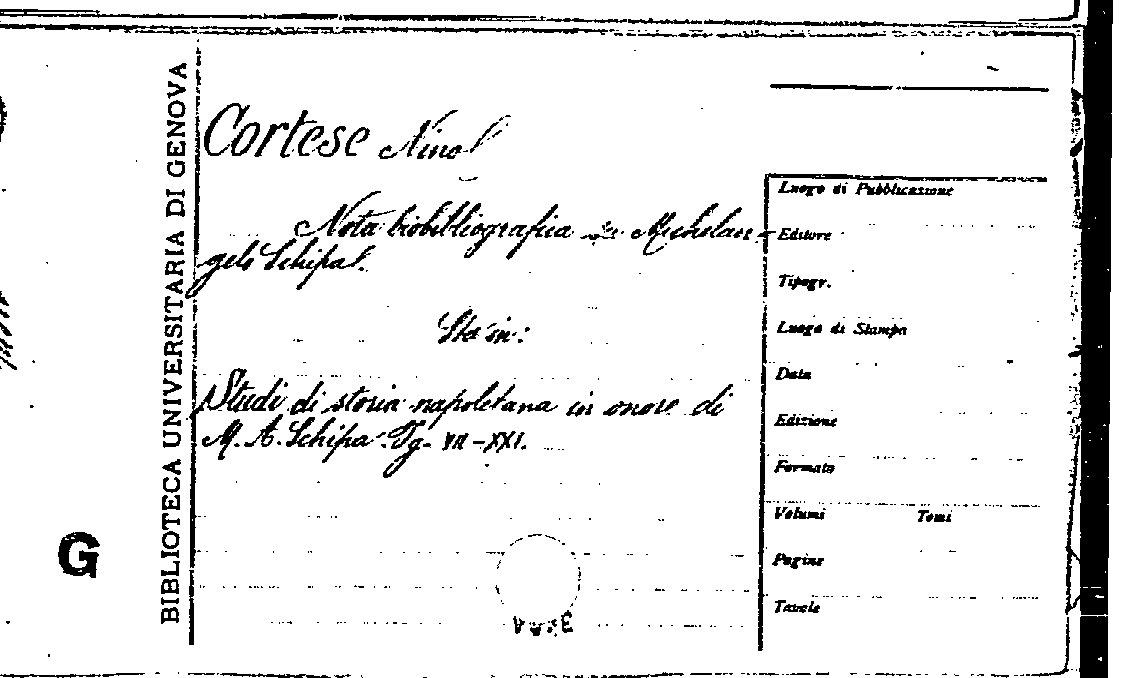 BIBLIOTECA UNIVERSITARIA DI GENOVA
G
Cortese Nino
Nota biobibliografica di Michelan-
gelo Schipa.
Sta in:
Studi di storia napoletana in onore di
M. A. Schipa. Pg. VII-XXI.
Luogo di Pubblicazione
Editore
Tipogr.
Luogo di Stampa
Data
Edizione
Formato
Volumi Tomi
Pagine
Tavole